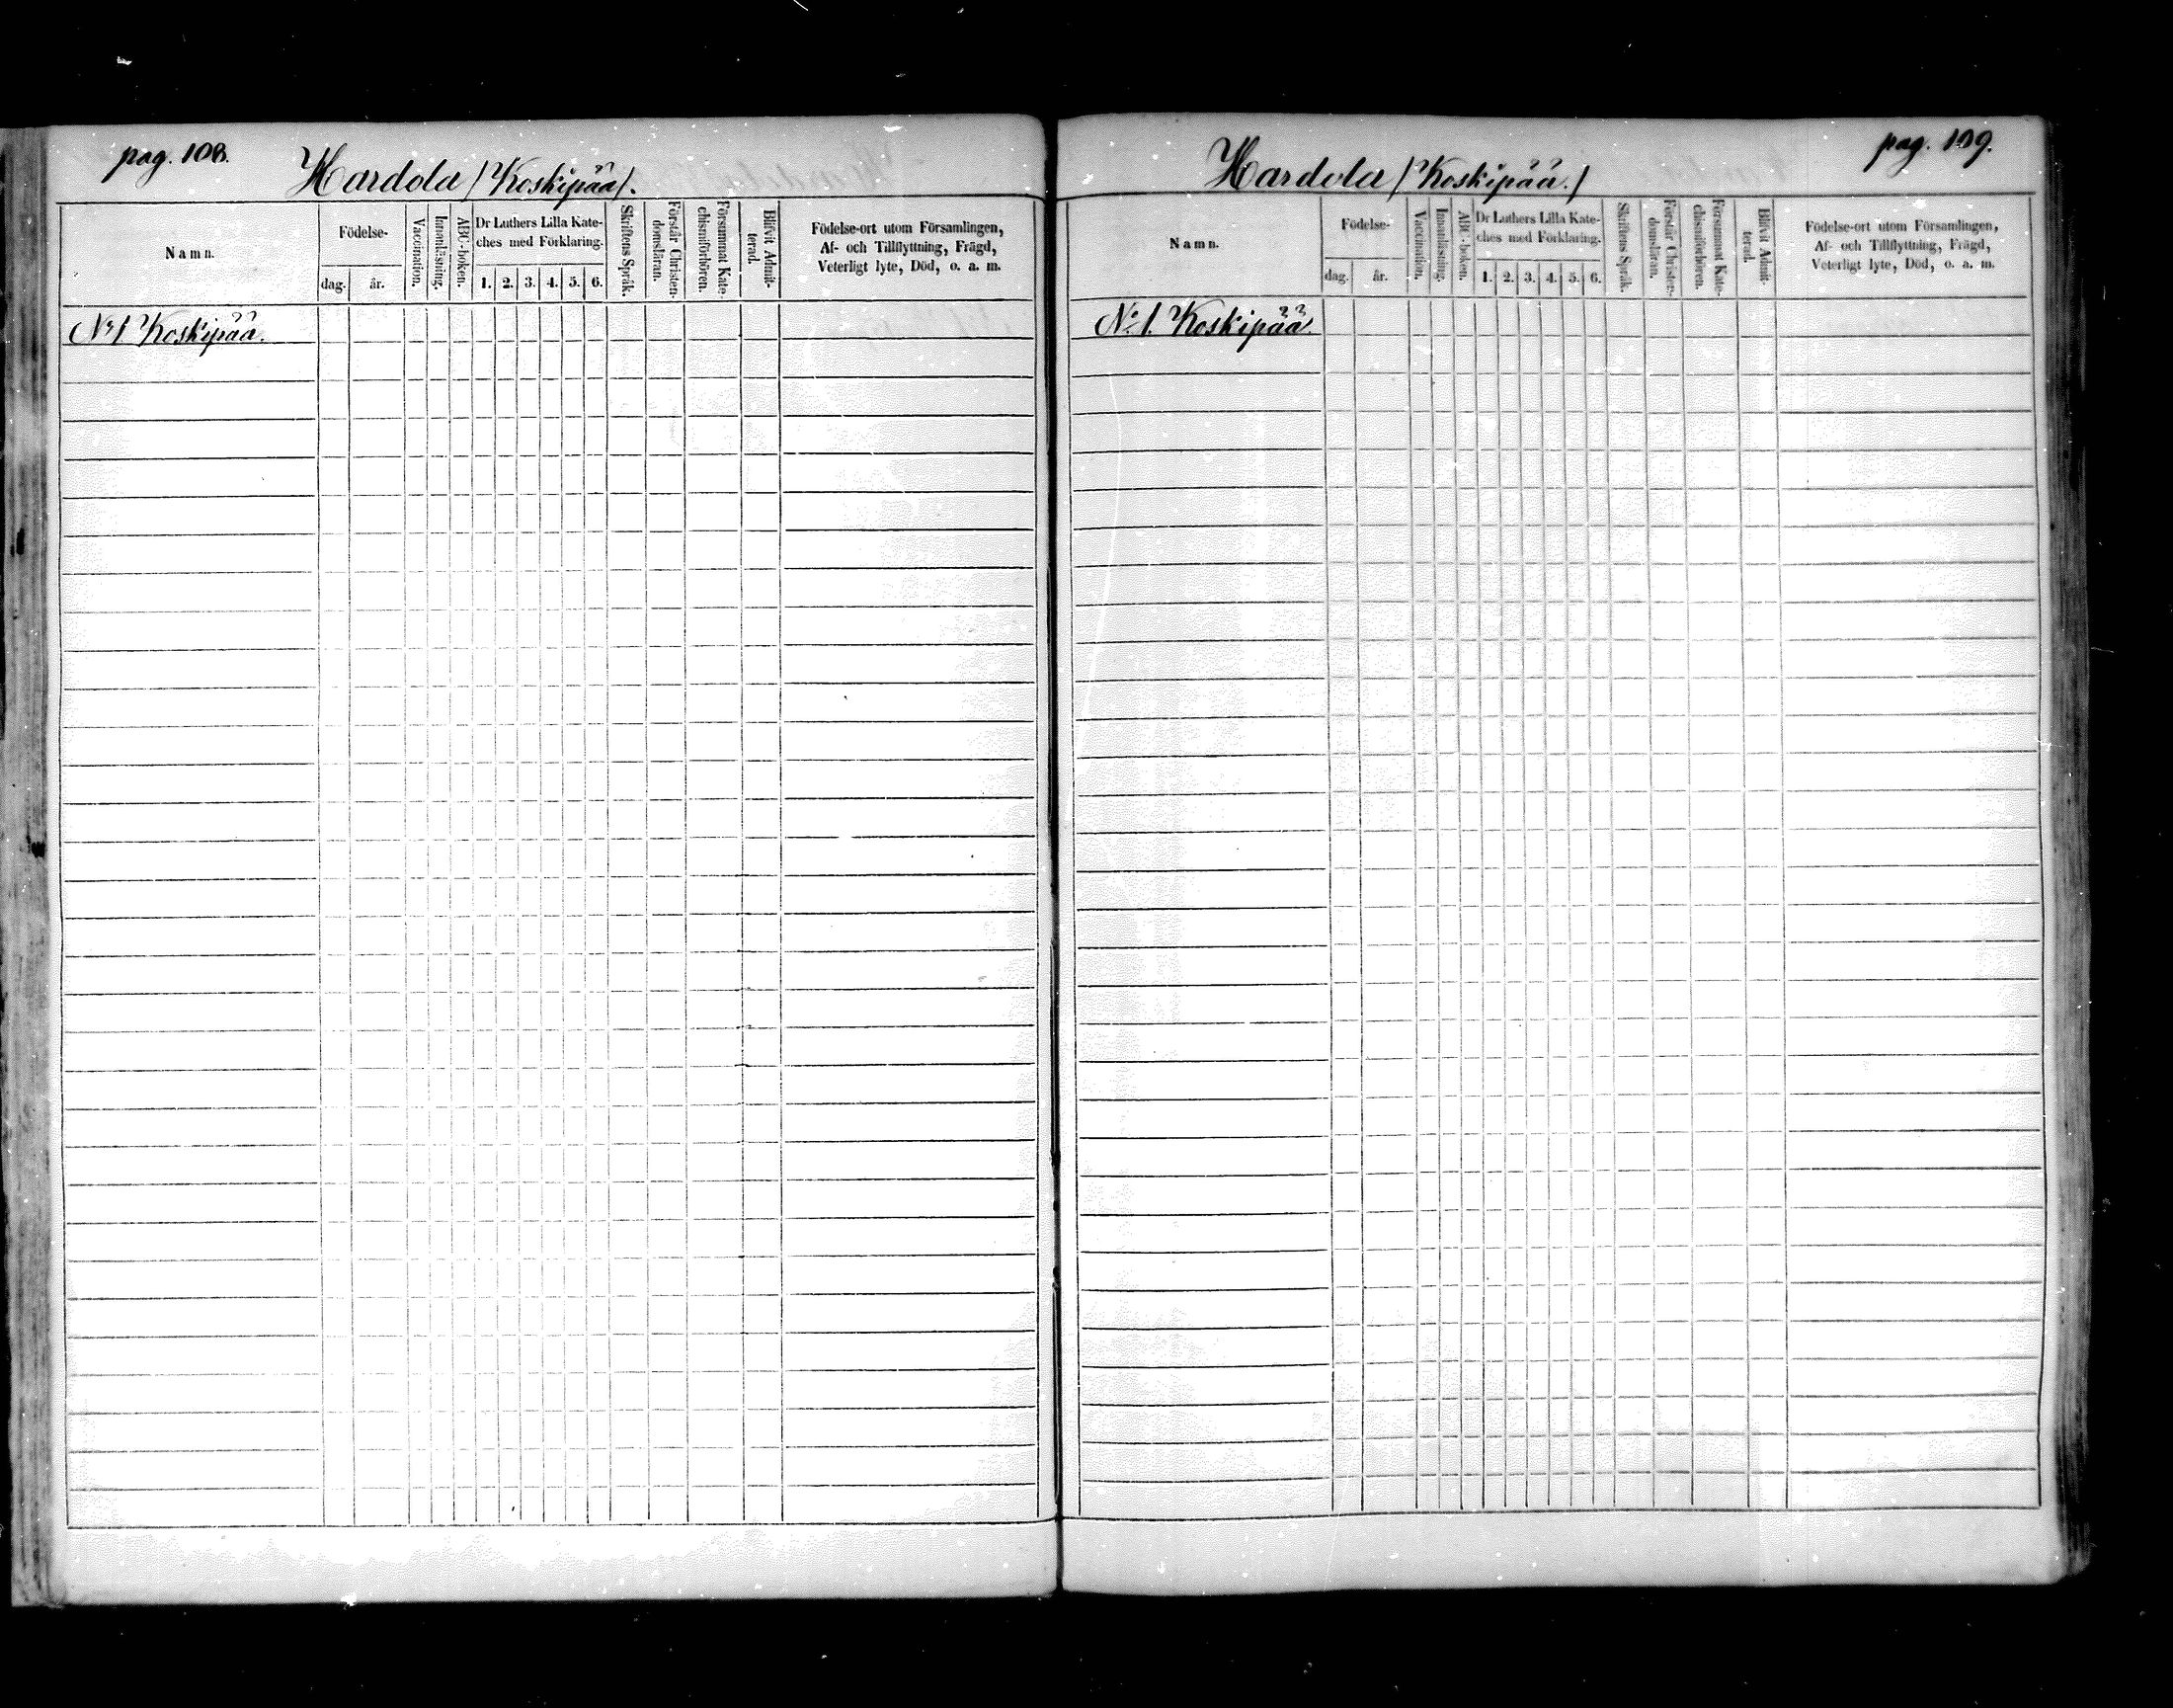 pag. 108.
Hardola (Koskipää).
Namn.
Födelse-
dag.
år.
Vaccination.
Innanläsning.
ABC-boken.
Dr Luthers Lilla Kate-
ches med Förklaring.
1. 2. 3. 4. 5. 6.
Skriftens Språk.
Förstår Christen-
domsläran.
Försummat Kate-
chismiförhören.
Blifvit Admit-
terad.
Födelse-ort utom Församlingen,
Af- och Tillflyttning, Frägd,
Veterligt lyte, Död, o. a. m.
No 1 Koskipää.
pag. 109.
Hardola (Koskipää.)
Namn.
Födelse-
dag.
år.
Vaccination.
Innanläsning.
ABC-boken.
Dr Luthers Lilla Kate-
ches med Förklaring.
1. 2. 3. 4. 5. 6.
Skriftens Språk.
Förstår Christen-
domsläran.
Försummat Kate-
chismiförhören.
Blifvit Admit-
terad.
Födelse-ort utom Församlingen,
Af- och Tillflyttning, Frägd,
Veterligt lyte, Död, o. a. m.
No 1. Koskipää